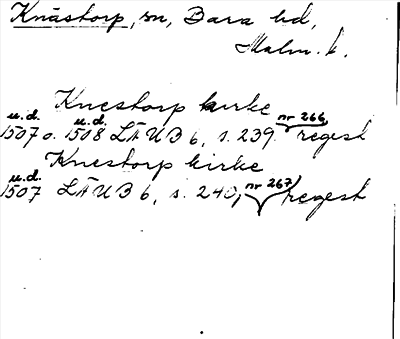 Knästorp, sn, Bara hd,
Malm. l.
Knestorp kirke
u.d. 1507 o. u.d. 1508 LÄUB 6, s. 239. nr 266, regest
Knestorp kirke
u.d. 1507 LÄUB 6, s. 240, nr 267, regest